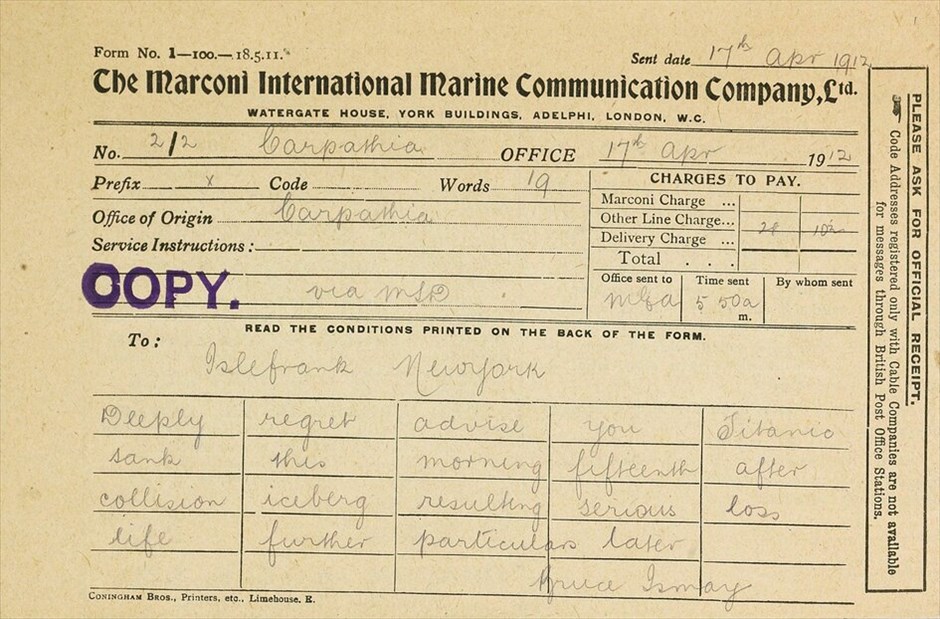 Form No. 1—100.—18.5.11.
Sent date 17th Apr 1912
The Marconi International Marine Communication Company, Ltd.
WATERGATE HOUSE, YORK BUILDINGS, ADELPHI, LONDON, W.C.
No. 2/2 Carpathia OFFICE 17th Apr 1912
Prefix x Code Words 19
CHARGES TO PAY.
Marconi Charge ...
Office of Origin Carpathia
Other Line Charge...
Delivery Charge ...
Service Instructions:
Total . . .
COPY.
via MSD
Office sent to Time sent By whom sent
5 50a
m.
READ THE CONDITIONS PRINTED ON THE BACK OF THE FORM.
To:
Islefrank Newyork
Deeply regret advise you Titanic
sank this morning fifteenth after
collision iceberg resulting serious loss
life further particulars later
Bruce Ismay
CONINGHAM BROS., Printers, etc., Limehouse, E.
PLEASE ASK FOR OFFICIAL RECEIPT.
☛ Code Addresses registered only with Cable Companies are not available
for messages through British Post Office Stations.